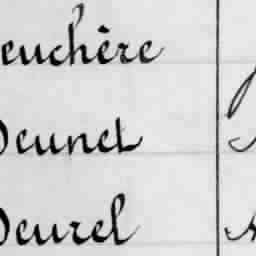 euchère
Deunet
Deurel